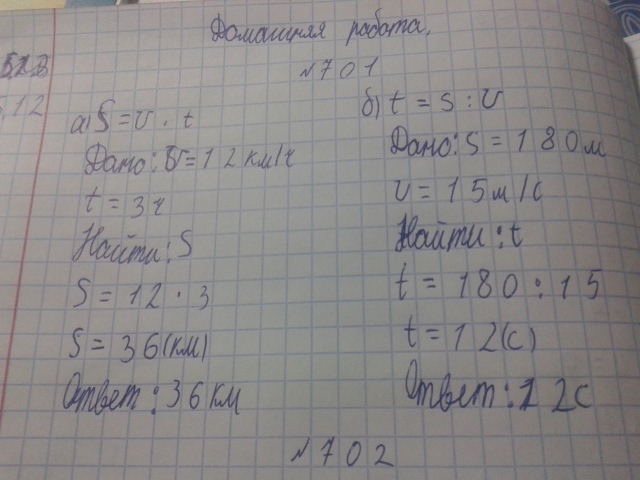 Домашняя работа.
№701
а) S = v · t
Дано: v = 12 км/ч
t = 3ч
Найти: S
S = 12 · 3
S = 36 (км)
Ответ: 36 км
б) t = s : v
Дано: s = 180 м
v = 15 м/с
Найти: t
t = 180 : 15
t = 12 (с)
Ответ: 12с
№702